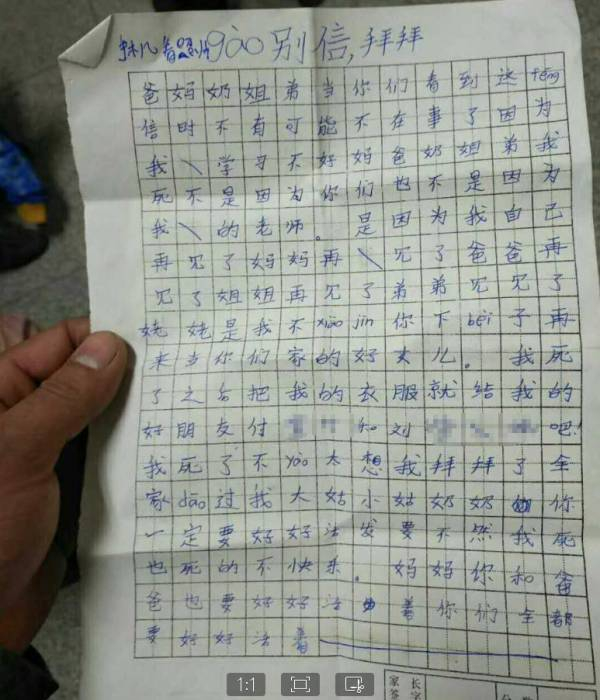 gào别信,拜拜
爸妈奶姐弟当你们看到这fēng
信时不有可能不在事了因为
我 学习不好妈爸奶姐弟我
死不是因为你们也不是因为
我 的老师。是因为我自己
再见了妈妈再 见了爸爸再
见了姐姐再见了弟弟见见了
姥姥是我不xiào jìn你下bèi子再
来当你们家的好女儿。我死
了之后把我的衣服就给我的
好朋友付 和刘 吧!
我死了不yào太想我拜拜了全
家dāo过我大姑小姑奶奶 你
一定要好好活发要不然我死
也死的不快乐。妈妈你和爸
爸也要好好活 着你们全都
要好好活着
家长
签字
1:1